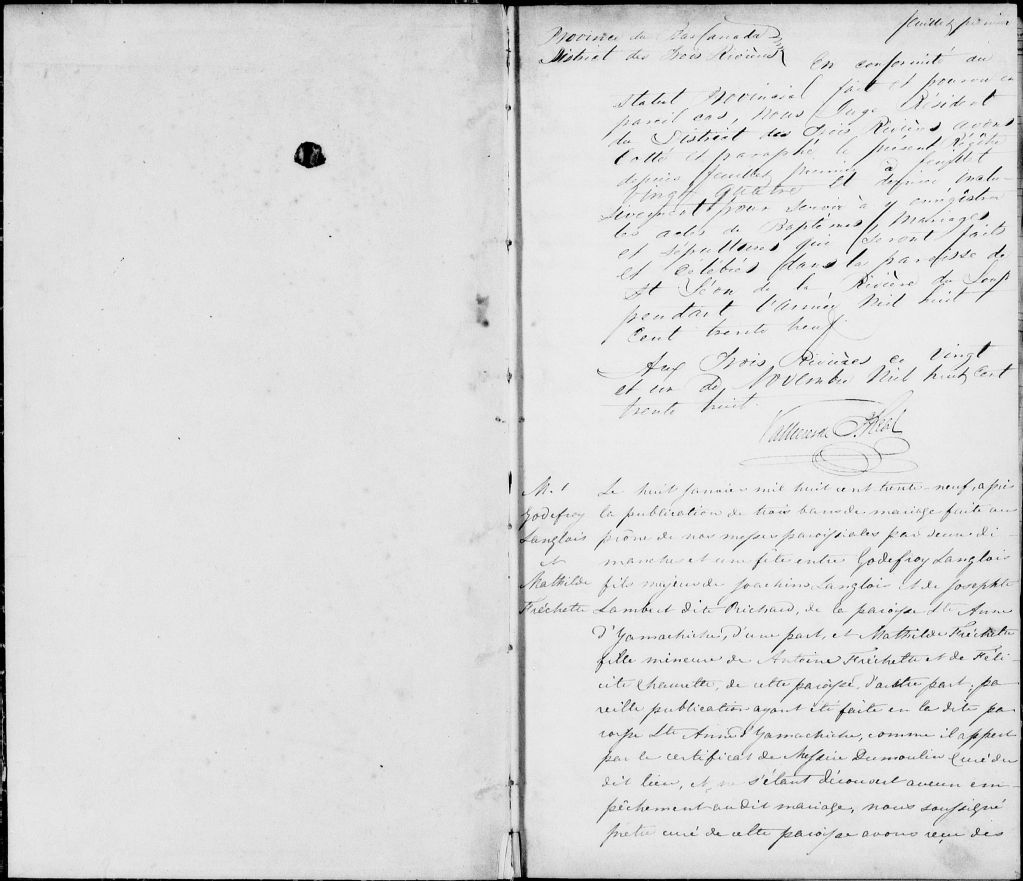 feuillet premier
Province du Bas Canada
District des Trois Rivières
En conformité du
Statut Provincial fait et pourvu en
pareil cas, Nous Juge Résident
du District des Trois Rivières, avons
Cotté et paraphé le présent Régître
depuis feuillet premier à feuillet
Vingt quatre et dernier inclu-
sivement pour servir à y enrégistrer
les actes de Baptêmes, Mariages
et sépultures qui seront faits
et célébrés dans la paroisse de
St Léon de la Rivière du Loup
pendant l'année Mil huit
Cent trente neuf.
Aux Trois Rivières ce Vingt
et un de Novembre Mil huit Cent
trente huit.
M. 1
Godefroy
Langlois
et
Mathilde
Fréchette
Le huit Janvier mil huit cent trente-neuf, après
la publication de trois bans de mariage faite au
prône de nos messes paroissiales par deux di-
manches et une fête entre Godefroy Langlois
fils majeur de Joachim Langlois et de Josephte
Lambert dite Richard, de la paroisse Ste Anne
d'Yamachiche, d'une part, et Mathilde Fréchette
fille mineure de Antoine Fréchette et de Féli-
cité Chaurette, de cette paroisse, d'autre part, pa-
reille publication ayant été faite en la dite pa-
roisse Ste Anne d'Yamachiche, comme il appert
par le certificat de Messire Dumoulin Curé du
dit lieu, et ne s'étant découvert aucun em-
pêchement au dit mariage, nous soussigné
prêtre curé de cette paroisse avons reçu des